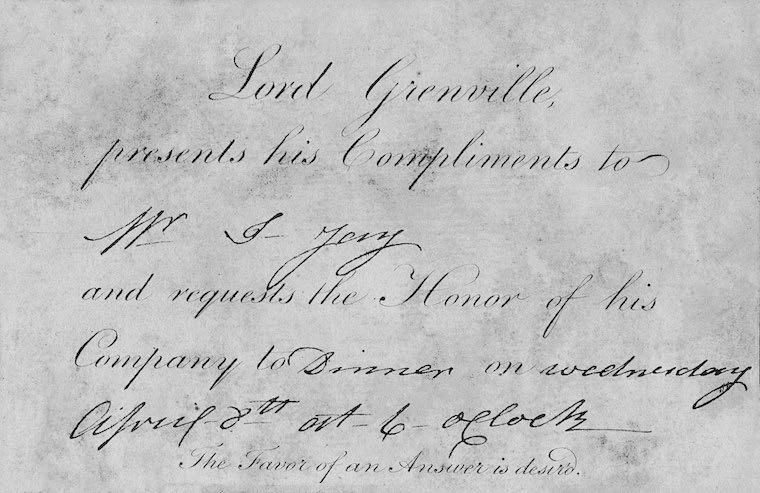 Lord Grenville,
presents his Compliments to
Mr J- Jay
and requests the Honor of his
Company to Dinner on wednesday
April 8th at 6 oClock
The Favor of an Answer is desir'd.